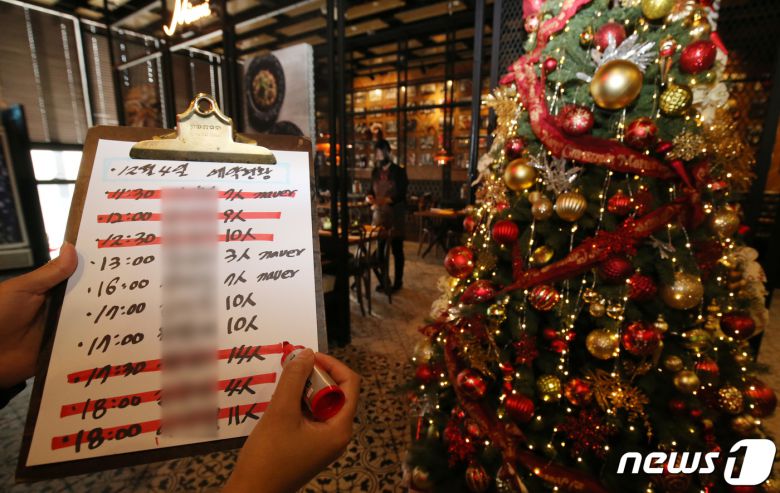 12월 4일 예약현황
·11:30 7人 naver
·12:00 9人
·12:30 10人
·13:00 3人 naver
·16:00 7人 naver
·17:00 10人
·17:00 10人
·17:30 14人
·18:00 4人
·18:00 11人
news1